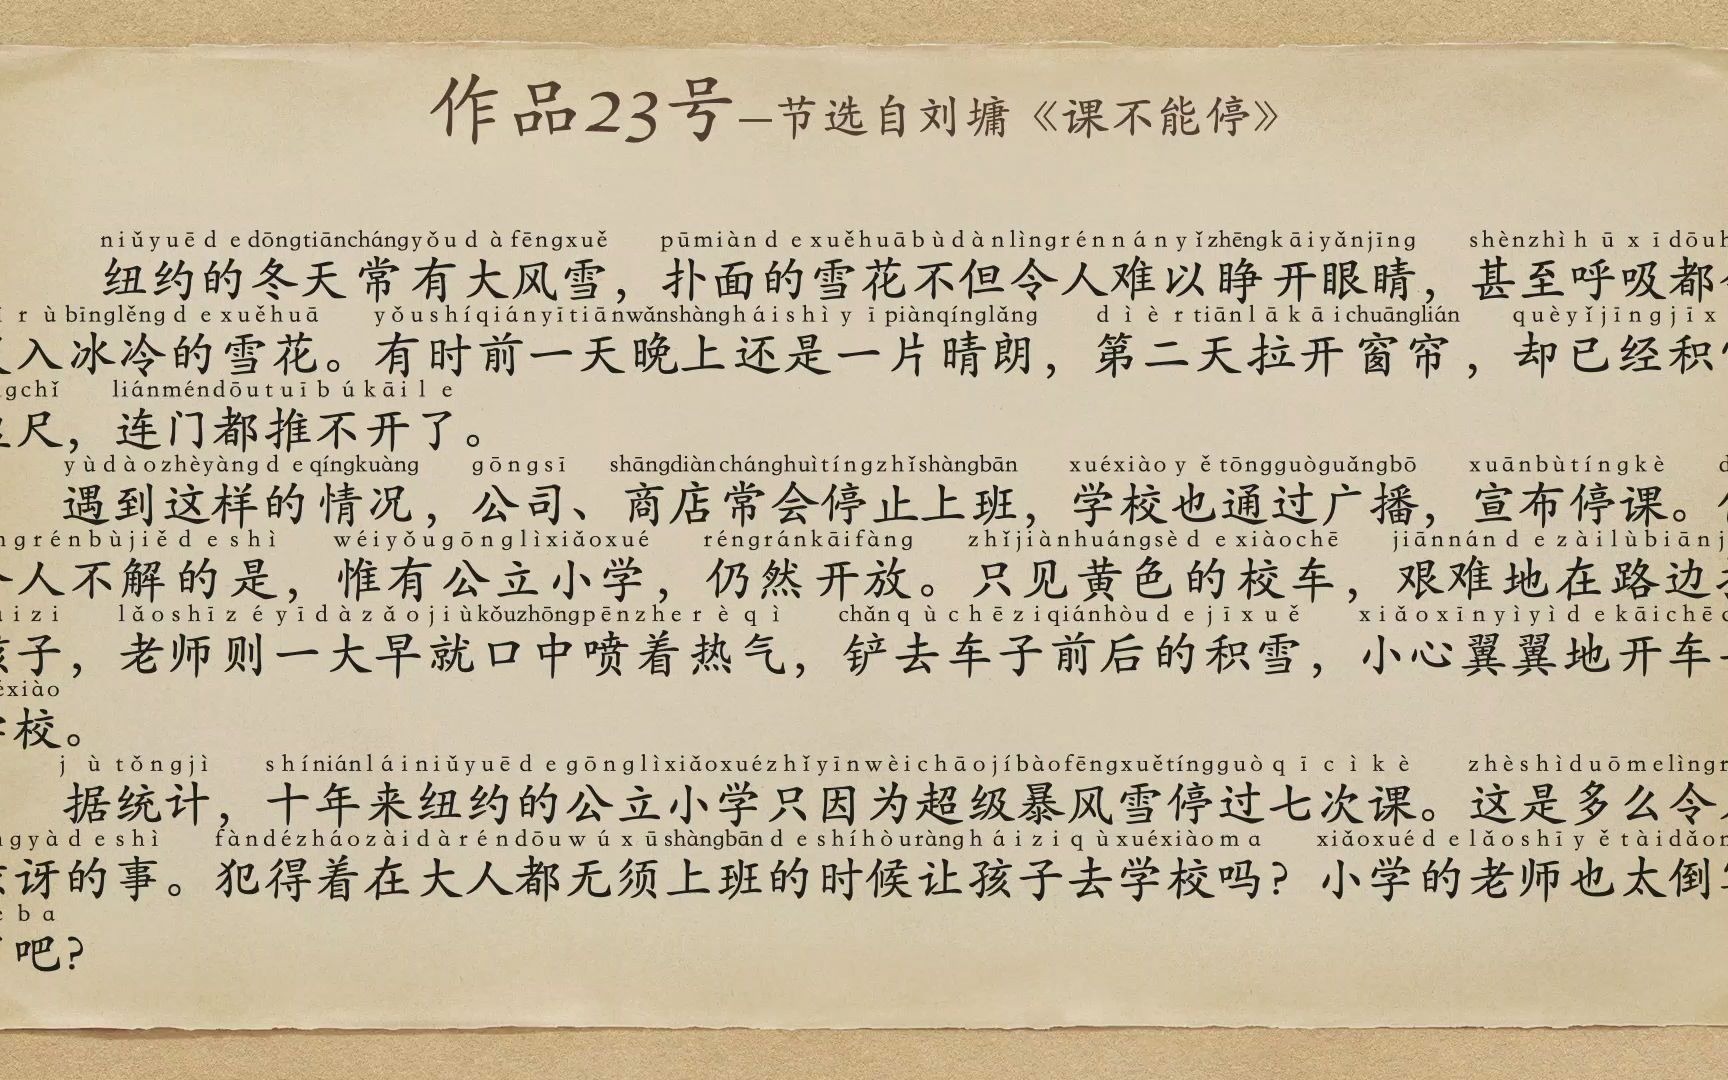 作品23号—节选自刘墉《课不能停》
niǔyuēdedōngtiānchángyǒudàfēngxuě pūmiàndexuěhuābùdànlìngrénnányǐzhēngkāiyǎnjīng shènzhìhūxīdōu
纽约的冬天常有大风雪，扑面的雪花不但令人难以睁开眼睛，甚至呼吸都
rùbīnglěngdexuěhuā yǒushíqiányītiānwǎnshàngháishìyīpiànqínglǎng dìèrtiānlākāichuānglián quèyǐjīngjī
入冰冷的雪花。有时前一天晚上还是一片晴朗，第二天拉开窗帘，却已经积
chǐ liánméndōutuībúkāile
尺，连门都推不开了。
yùdàozhèyàngdeqíngkuàng gōngsī shāngdiànchánghuìtíngzhǐshàngbān xuéxiàoyětōngguòguǎngbō xuānbùtíngkè
遇到这样的情况，公司、商店常会停止上班，学校也通过广播，宣布停课。
rénbùjiědeshì wéiyǒugōnglìxiǎoxué réngránkāifàng zhǐjiànhuángsèdexiàochē jiānnándezàilùbiān
人不解的是，惟有公立小学，仍然开放。只见黄色的校车，艰难地在路边
zi lǎoshīzéyīdàzǎojiùkǒuzhōngpēnzherèqì chǎnqùchēziqiánhòudejīxuě xiǎoxīnyìyìdekāichē
子，老师则一大早就口中喷着热气，铲去车子前后的积雪，小心翼翼地开车
xiào
校。
jùtǒngjì shíniánláiniǔyuēdegōnglìxiǎoxuézhǐyīnwèichāojíbàofēngxuětíngguòqīcìkè zhèshìduōmelìng
据统计，十年来纽约的公立小学只因为超级暴风雪停过七次课。这是多么令
yàdeshì fàndézháozàidàréndōuwúxūshàngbāndeshíhòurànghháiziqùxuéxiàoma xiǎoxuédelǎoshīyětàidǎo
讶的事。犯得着在大人都无须上班的时候让孩子去学校吗？小学的老师也太倒
ba
吧？